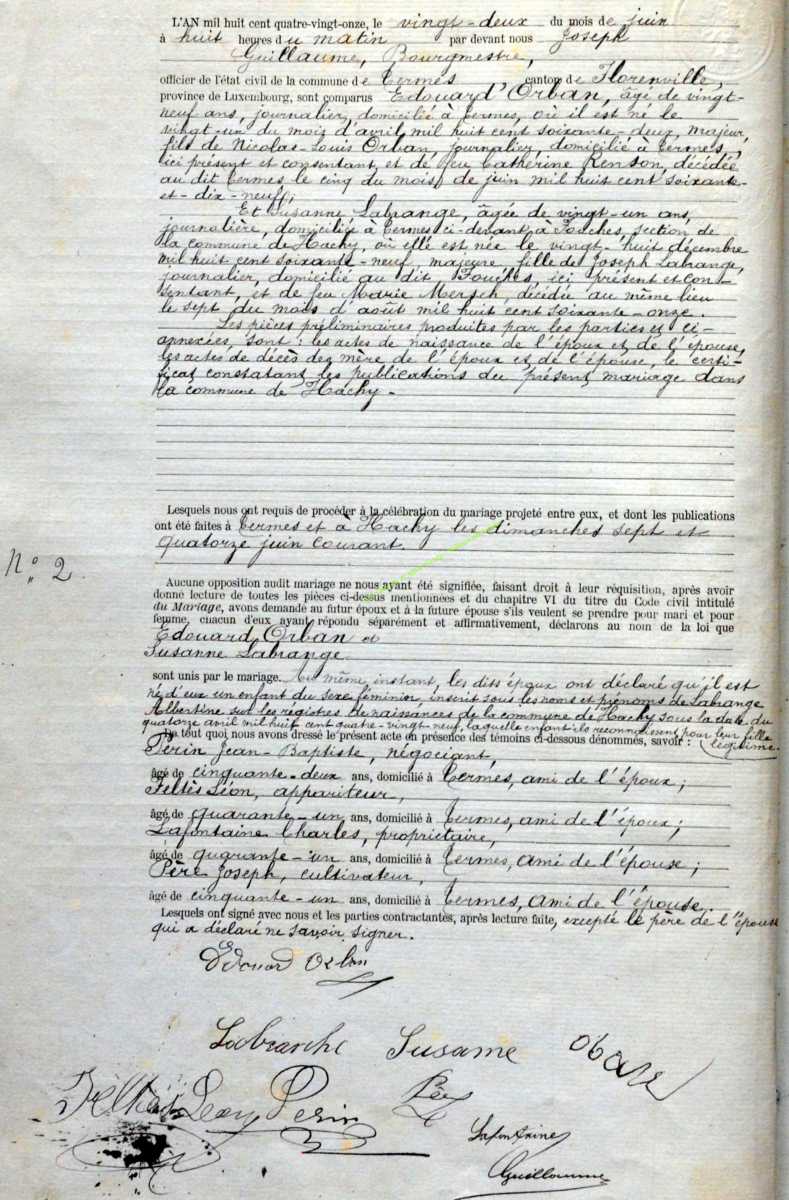 L'AN mil huit cent quatre-vingt-onze, le vingt-deux du mois de juin
à huit heures du matin par devant nous Joseph
Guillaume, Bourgmestre,
officier de l'état civil de la commune de Termes canton de Florenville,
province de Luxembourg, sont comparus Edouard Orban, âgé de vingt-
neuf ans, journalier, domicilié à Termes, où il est né le
vingt-un du mois d'avril mil huit cent soixante-deux, majeur,
fils de Nicolas-Louis Orban, journalier, domicilié à Termes,
ici présent et consentant, et de feu Catherine Renson, décédée
au dit Termes le cinq du mois de juin mil huit cent soixante-
et-dix-neuf;
Et Susanne Labrange, âgée de vingt-un ans,
journalière, domiciliée à Termes ci-devant à Fouches, section de
la commune de Hachy, où elle est née le vingt-huit décembre
mil huit cent soixante-neuf, majeure, fille de Joseph Labrange,
journalier, domicilié au dit Fouches, ici présent et con-
sentant, et de feu Marie Mersch, décédée au même lieu
le sept du mois d'août mil huit cent soixante-onze.
Les pièces préliminaires produites par les parties et ci-
annexées, sont: les actes de naissance de l'époux et de l'épouse,
les actes de décès des mère de l'époux et de l'épouse, le certi-
ficat constatant les publications du présent mariage dans
la commune de Hachy.
Lesquels nous ont requis de procéder à la célébration du mariage projeté entre eux, et dont les publications
ont été faites à Termes et à Hachy les dimanches sept et
quatorze juin courant.
N° 2
Aucune opposition audit mariage ne nous ayant été signifiée, faisant droit à leur réquisition, après avoir
donné lecture de toutes les pièces ci-dessus mentionnées et du chapitre VI du titre du Code civil intitulé
du Mariage, avons demandé au futur époux et à la future épouse s'ils veulent se prendre pour mari et pour
femme, chacun d'eux ayant répondu séparément et affirmativement, déclarons au nom de la loi que
Edouard Orban et
Susanne Labrange
sont unis par le mariage. Au même instant, les dits époux ont déclaré qu'il est
né d'eux un enfant du sexe féminin, inscrit sous les noms et prénoms de Labrange
Albertine sur les registres de naissances de la commune de Hachy sous la date du
quatorze avril mil huit cent quatre-vingt-neuf, laquelle enfant ils reconnaissent pour leur fille
De tout quoi nous avons dressé le présent acte en présence des témoins ci-dessous dénommés, savoir: légitime.
Perin Jean-Baptiste, négociant,
âgé de cinquante-deux ans, domicilié à Termes, ami de l'époux;
Feltès Léon, appariteur,
âgé de quarante-un ans, domicilié à Termes, ami de l'époux;
Lafontaine Charles, propriétaire,
âgé de quarante-un ans, domicilié à Termes, ami de l'épouse;
Père Joseph, cultivateur,
âgé de cinquante-un ans, domicilié à Termes, ami de l'épouse.
Lesquels ont signé avec nous et les parties contractantes, après lecture faite, excepté le père de l'épouse
qui a déclaré ne savoir signer.
Edouard Orban
Labranche Susanne
Perin
Lafontaine
Guillaume